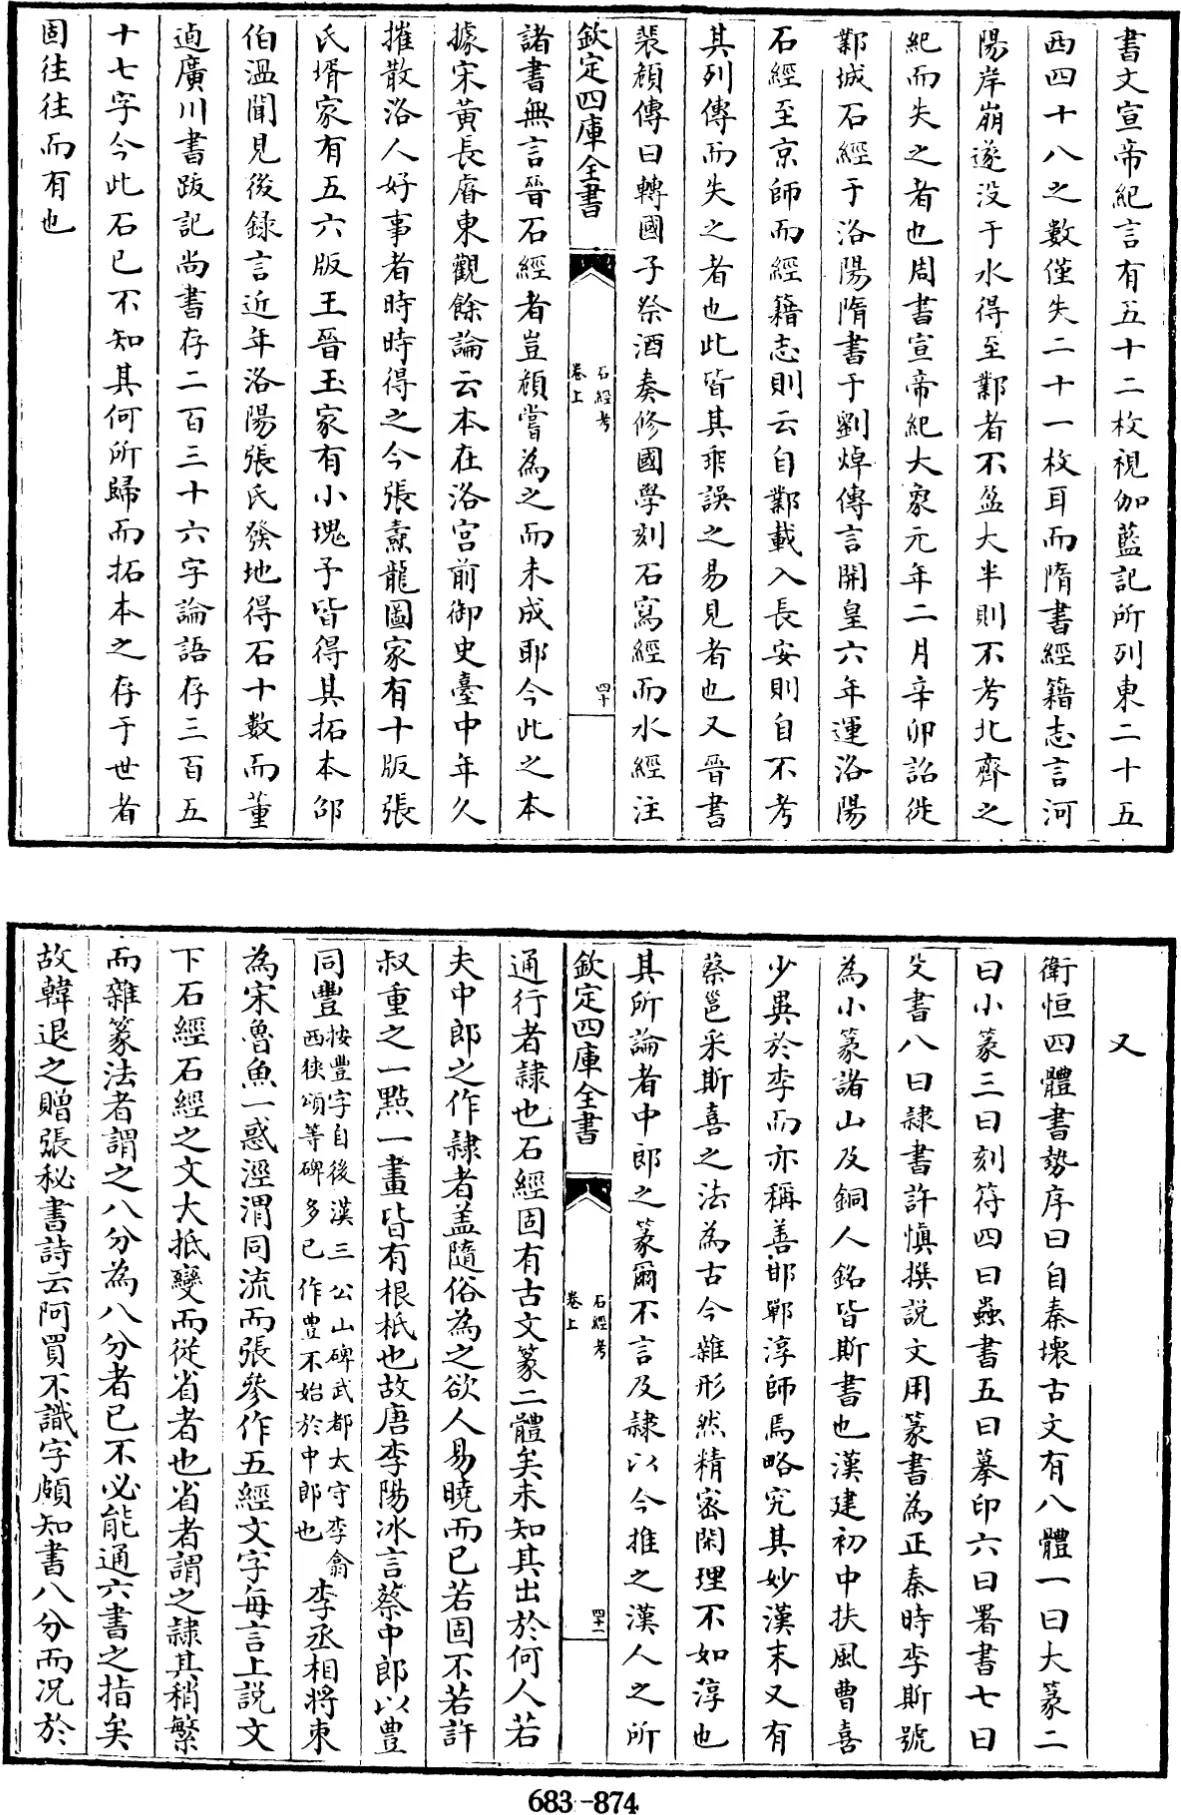 書文宣帝紀言有五十二枚視伽藍記所列東二十五
西四十八之數僅失二十一枚耳而隋書經籍志言河
陽岸崩遂没于水得至鄴者不盈大半則不考北齊之
紀而失之者也周書宣帝紀大象元年二月辛卯詔徙
鄴城石經于洛陽隋書于劉焯傳言開皇六年運洛陽
石經至京師而經籍志則云自鄴載入長安則自不考
其列傳而失之者也此皆其乖誤之易見者也又晉書
裴頠傳曰轉國子祭酒奏修國學刻石寫經而水經注
欽定四庫全書
石經考
卷上
四十
諸書無言晉石經者豈頠嘗為之而未成耶今此之本
據宋黃長睿東觀餘論云本在洛宮前御史臺中年久
摧散洛人好事者時時得之今張燾龍圖家有十版張
氏壻家有五六版王晉玉家有小塊予皆得其拓本邵
伯溫聞見後録言近年洛陽張氏發地得石十數而董
逌廣川書跋記尚書存二百三十六字論語存三百五
十七字今此石已不知其何所歸而拓本之存于世者
固往往而有也
又
衛恒四體書勢序曰自秦壞古文有八體一曰大篆二
曰小篆三曰刻符四曰蟲書五曰摹印六曰署書七曰
殳書八曰隷書許慎撰説文用篆書為正秦時李斯號
為小篆諸山及銅人銘皆斯書也漢建初中扶風曹喜
少異於李而亦稱善邯鄲淳師焉略究其妙漢末又有
蔡邕采斯喜之法為古今雜形然精密閑理不如淳也
其所論者中郎之篆爾不言及隷以今推之漢人之所
欽定四庫全書
石經考
卷上
四十一
通行者隷也石經固有古文篆二體矣未知其出於何人若
夫中郎之作隷者盖隨俗為之欲人易曉而已若固不若許
叔重之一點一畫皆有根柢也故唐李陽冰言蔡中郎以豊
同豐按豐字自後漢三公山碑武都太守李翕
西狹頌等碑多已作豊不始於中郎也李丞相將朿
為宋魯魚一惑涇渭同流而張參作五經文字每言上説文
下石經石經之文大抵變而從省者也省者謂之隷其稍繁
而雜篆法者謂之八分為八分者已不必能通六書之指矣
故韓退之贈張秘書詩云阿買不識字頗知書八分而况於
683-874